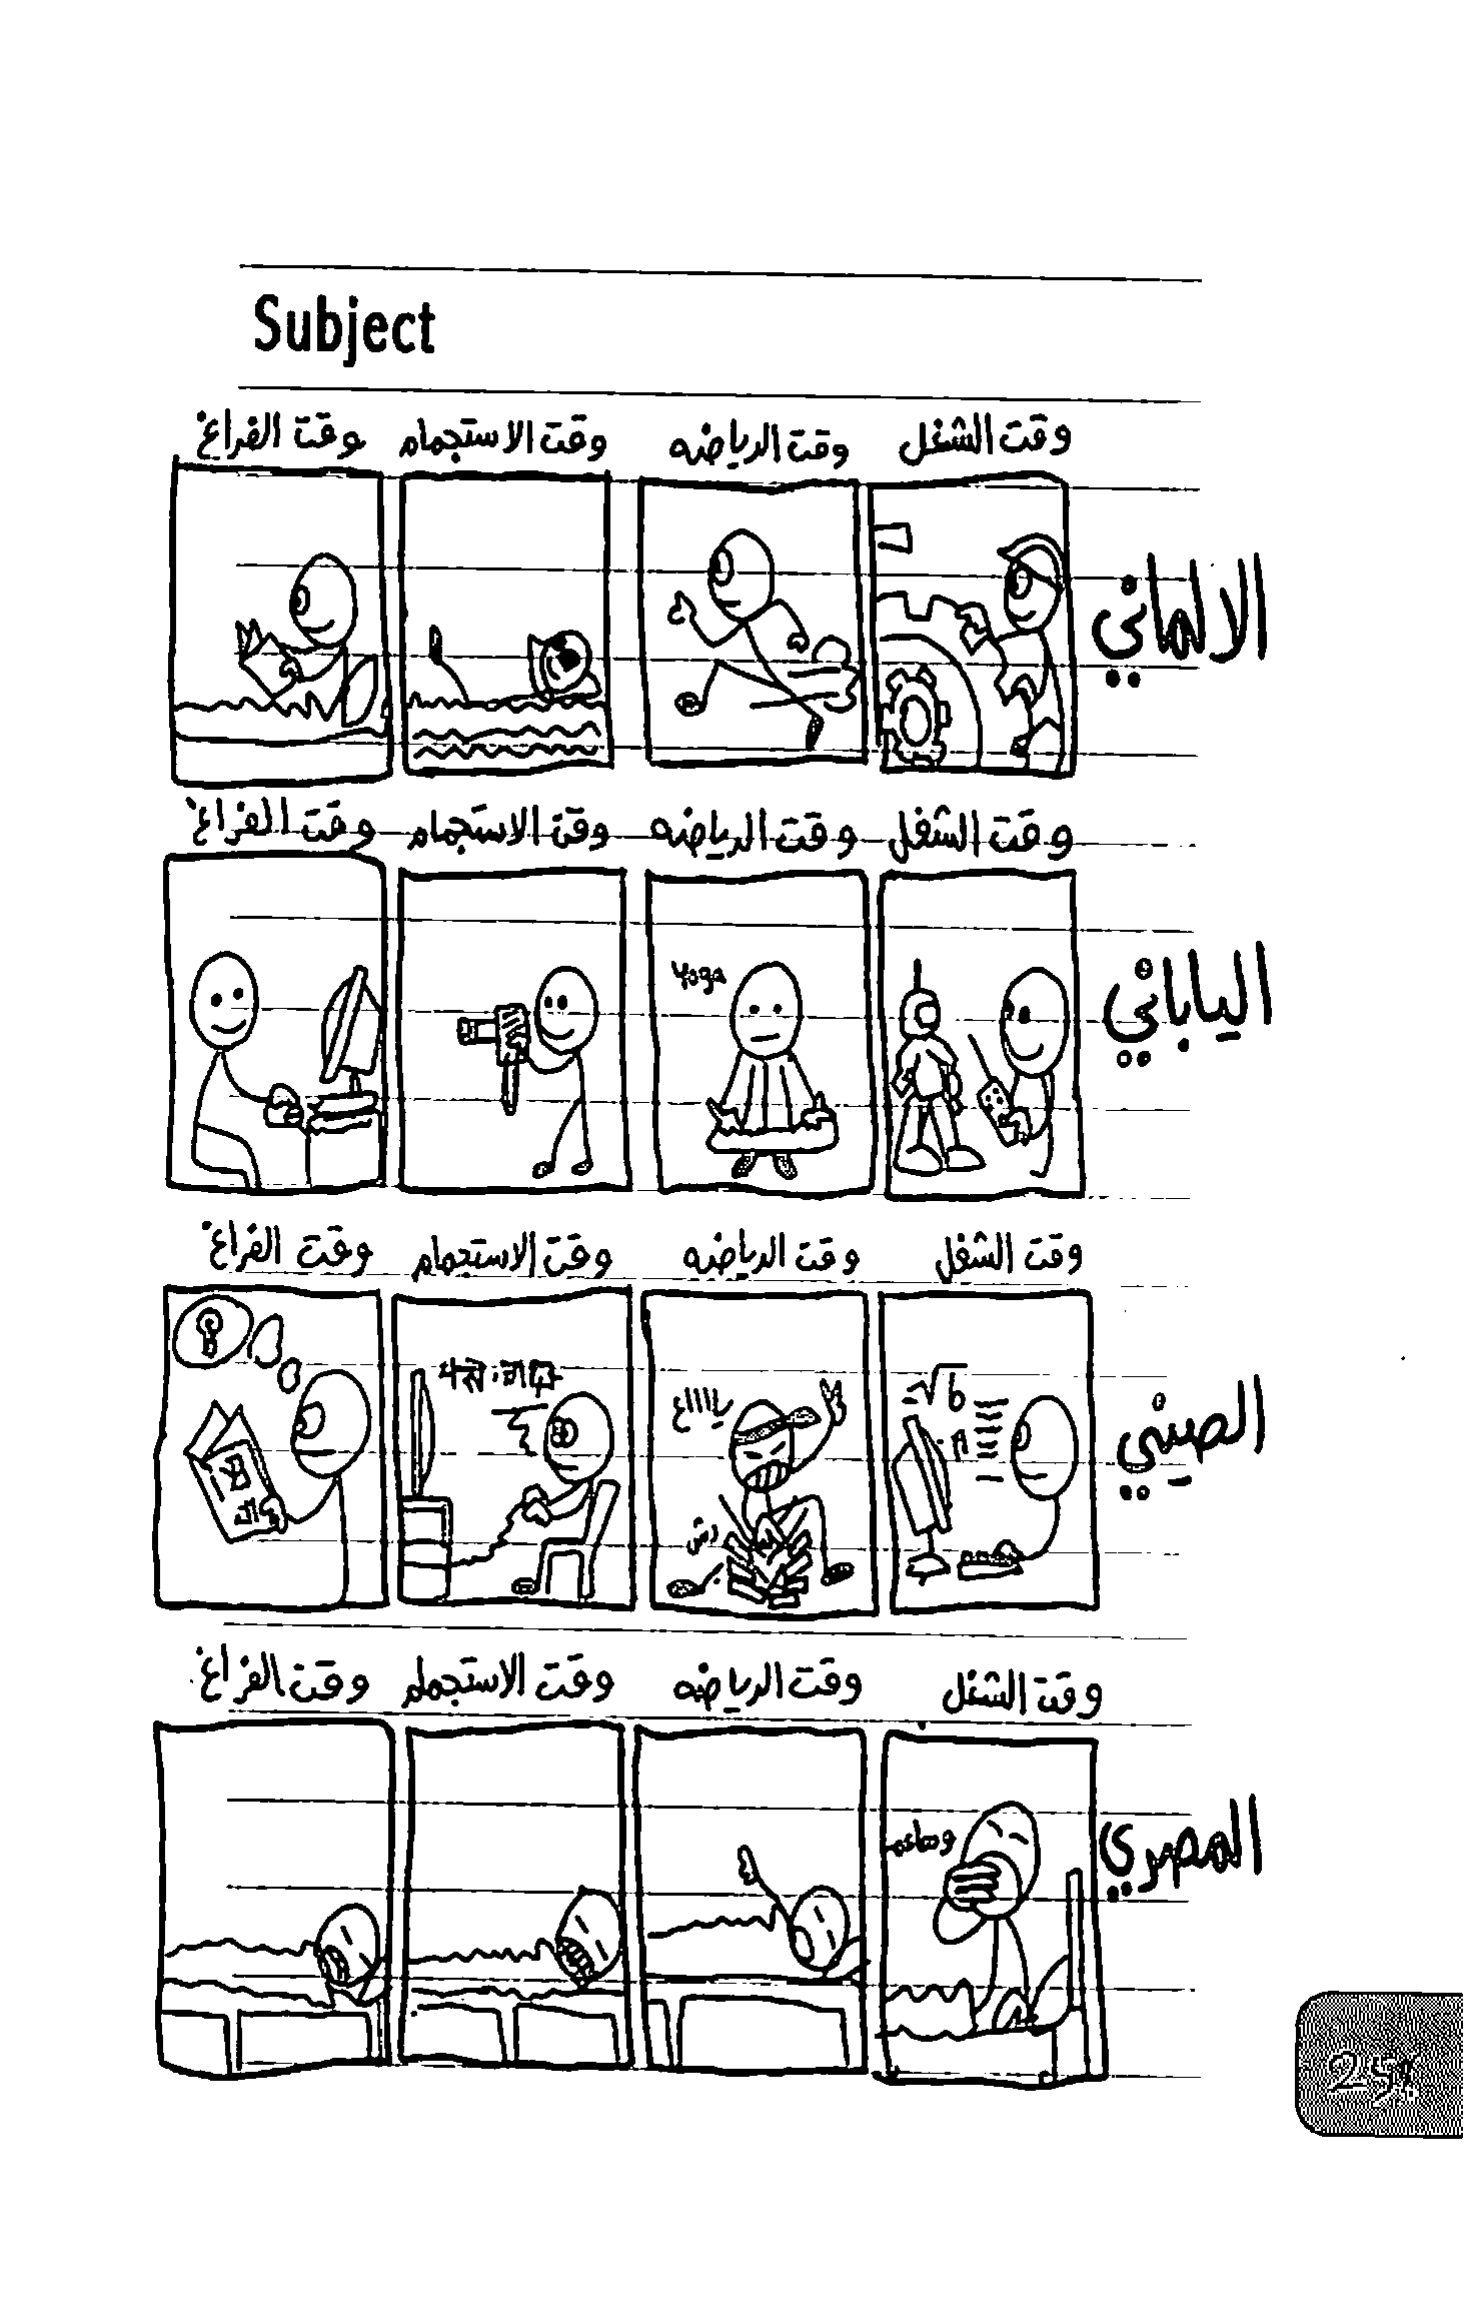 Subject
وقت الشغل وقت الرياضه وقت الاستجمام وقت الفراغ
الالماني
وقت الشغل وقت الرياضه وقت الاستجمام وقت الفراغ
الياباني
Yoga
وقت الشغل وقت الرياضه وقت الاستجمام وقت الفراغ
الصيني
√6
ياااااع
وقت الشغل وقت الرياضه وقت الاستجمام وقت الفراغ
المصري